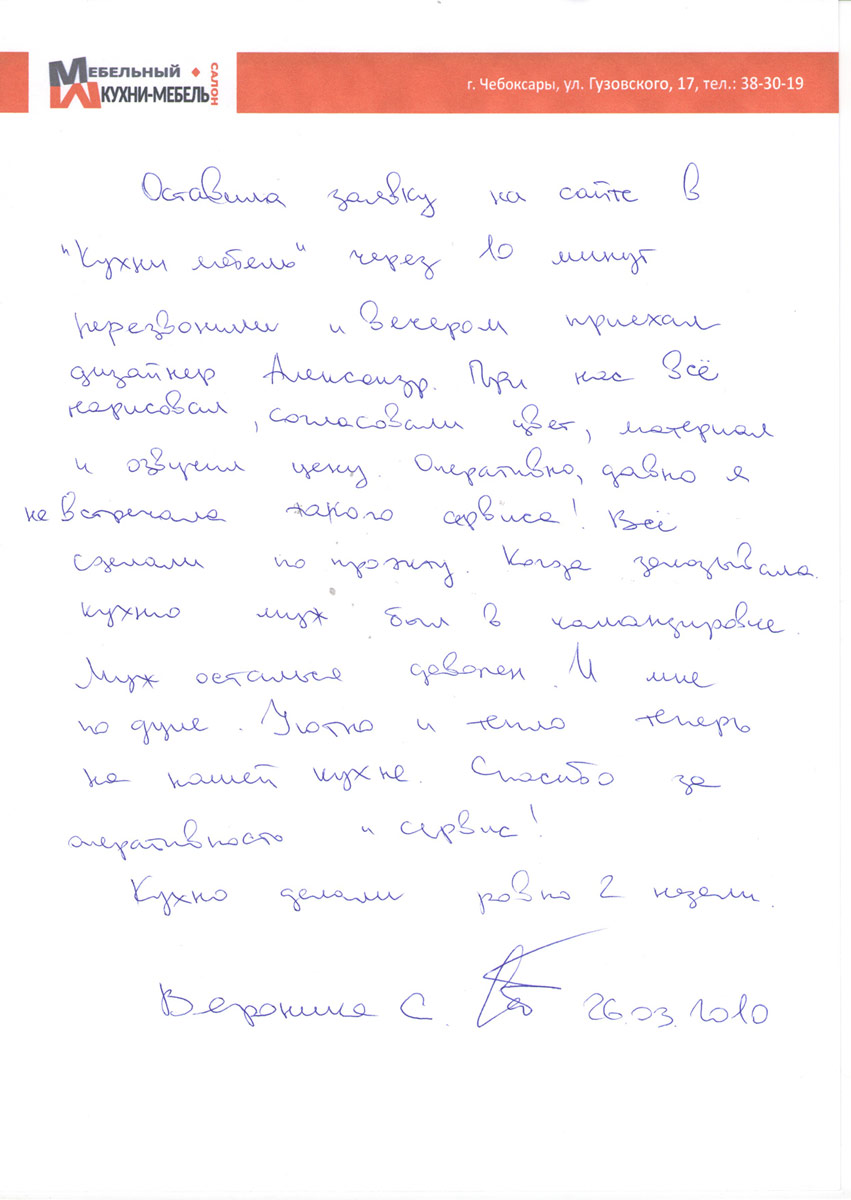 МЕБЕЛЬНЫЙ САЛОН
КУХНИ-МЕБЕЛЬ
г. Чебоксары, ул. Гузовского, 17, тел.: 38-30-19
Оставила заявку на сайте в
"Кухни мебель" через 10 минут
перезвонили и вечером приехал
дизайнер Александр. При нас всё
нарисовал, согласовали цвет, материал
и озвучил цену. Оперативно, давно я
не встречала такого сервиса! Всё
сделали по проэкту. Когда заказывала
кухню муж был в командировке.
Муж остался доволен. И мне
по душе. Уютно и тепло теперь
на нашей кухне. Спасибо за
оперативность и сервис!
Кухню делали ровно 2 недели.
Вероника С. 26.03.2010